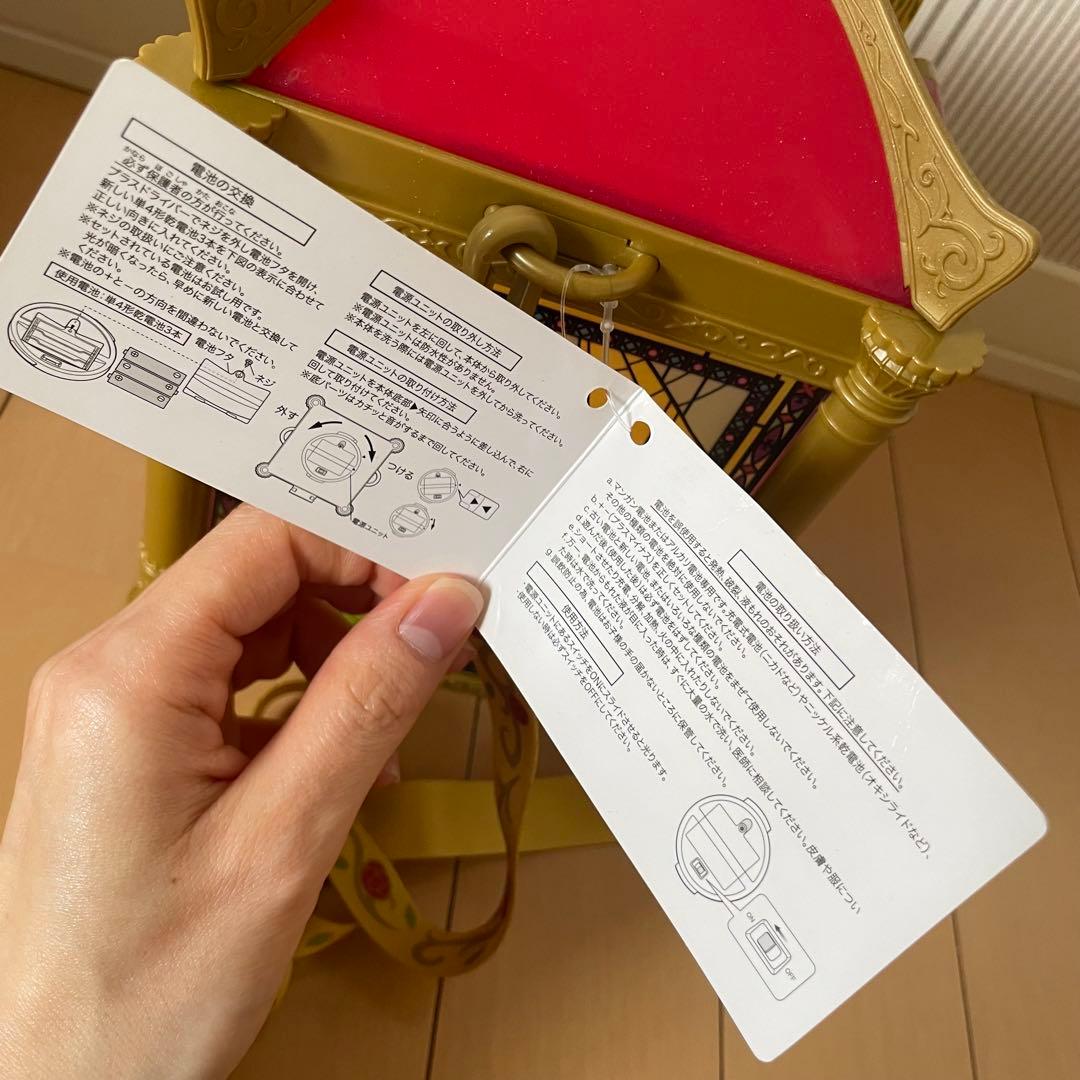 電池の交換
かなら ほごしゃ かた おこな
必ず保護者の方が行ってください。
プラスドライバーでネジを外し電池フタを開け、
新しい単4形乾電池3本を下図の表示に合わせて
正しい向きに入れてください。
※ネジの取扱いにご注意ください。
※セットされている電池はお試し用です。
光が暗くなったら、早めに新しい電池と交換して
ください。
※電池の+と-の方向を間違わないでください。
使用電池:単4形乾電池3本
電池フタ
ネジ
電源ユニットの取り外し方法
電源ユニットを左に回して、本体から取り外してください。
※電源ユニットは防水性がありません。
※本体を洗う際には電源ユニットを外してから洗ってください。
電源ユニットの取り付け方法
電源ユニットを本体底部▶矢印に合うように差し込んで、右に
回して取り付けてください。
※底パーツはカチッと音がするまで回してください。
外す
つける
電源ユニット
電池の取り扱い方法
電池を誤使用すると発熱、破裂、液もれのおそれがあります。下記に注意してください。
a.マンガン電池またはアルカリ電池専用です。充電式電池(ニカドなど)やニッケル系乾電池(オキシライドなど)、
その他の種類の電池を絶対に使用しないでください。
b.+-(プラスマイナス)を正しくセットしてください。
c.古い電池と新しい電池、またはいろいろな種類の電池をまぜて使用しないでください。
d.遊んだ後(使用した後)は必ず電池をはずしてください。
e.ショートさせたり充電、分解、加熱、火の中に入れたりしないでください。
f.万一、電池からもれた液が目に入った時は、すぐに大量の水で洗い、医師に相談してください。皮膚や服につい
た時は水で洗ってください。
g.誤飲防止の為、電池はお子様の手の届かないところに保管してください。
使用方法
・電源ユニットにあるスイッチをONにスライドさせると光ります。
・使用しない時は必ずスイッチをOFFにしてください。
ON
OFF